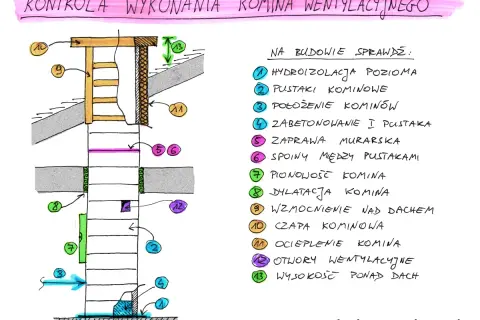 KONTROLA WYKONANIA KOMINA WENTYLACYJNEGO
NA BUDOWIE SPRAWDŹ:
1 HYDROIZOLACJA POZIOMA
2 PUSTAKI KOMINOWE
3 POŁOŻENIE KOMINÓW
4 ZABETONOWANIE I PUSTAKA
5 ZAPRAWA MURARSKA
6 SPOINY MIĘDZY PUSTAKAMI
7 PIONOWOŚĆ KOMINA
8 DYLATACJA KOMINA
9 WZMOCNIENIE NAD DACHEM
10 CZAPA KOMINOWA
11 OCIEPLENIE KOMINA
12 OTWORY WENTYLACYJNE
13 WYSOKOŚĆ PONAD DACH
10
13
9
11
5 6
8
12
7
2
3
4
1